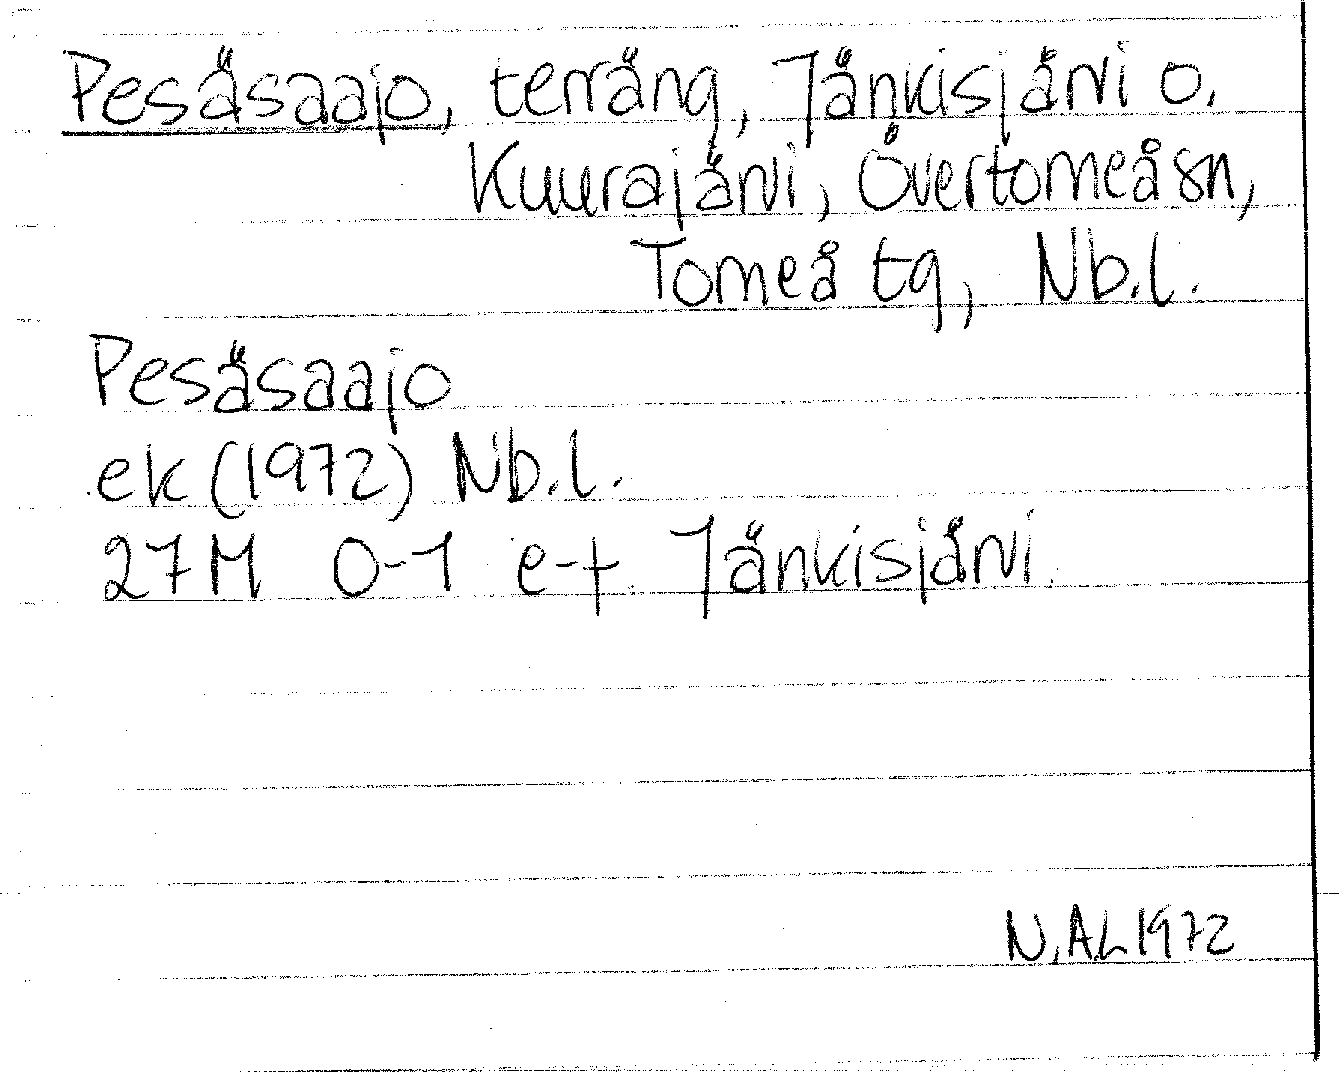 Pesäsaajo, terräng, Jänkisjärvi o.
Kuurajärvi, Övertorneå sn,
Torneå tg, Nb.l.
Pesäsaajo
ek (1972) Nb.l.
27M 0-1 e-f Jänkisjärvi
N.A.L 1972